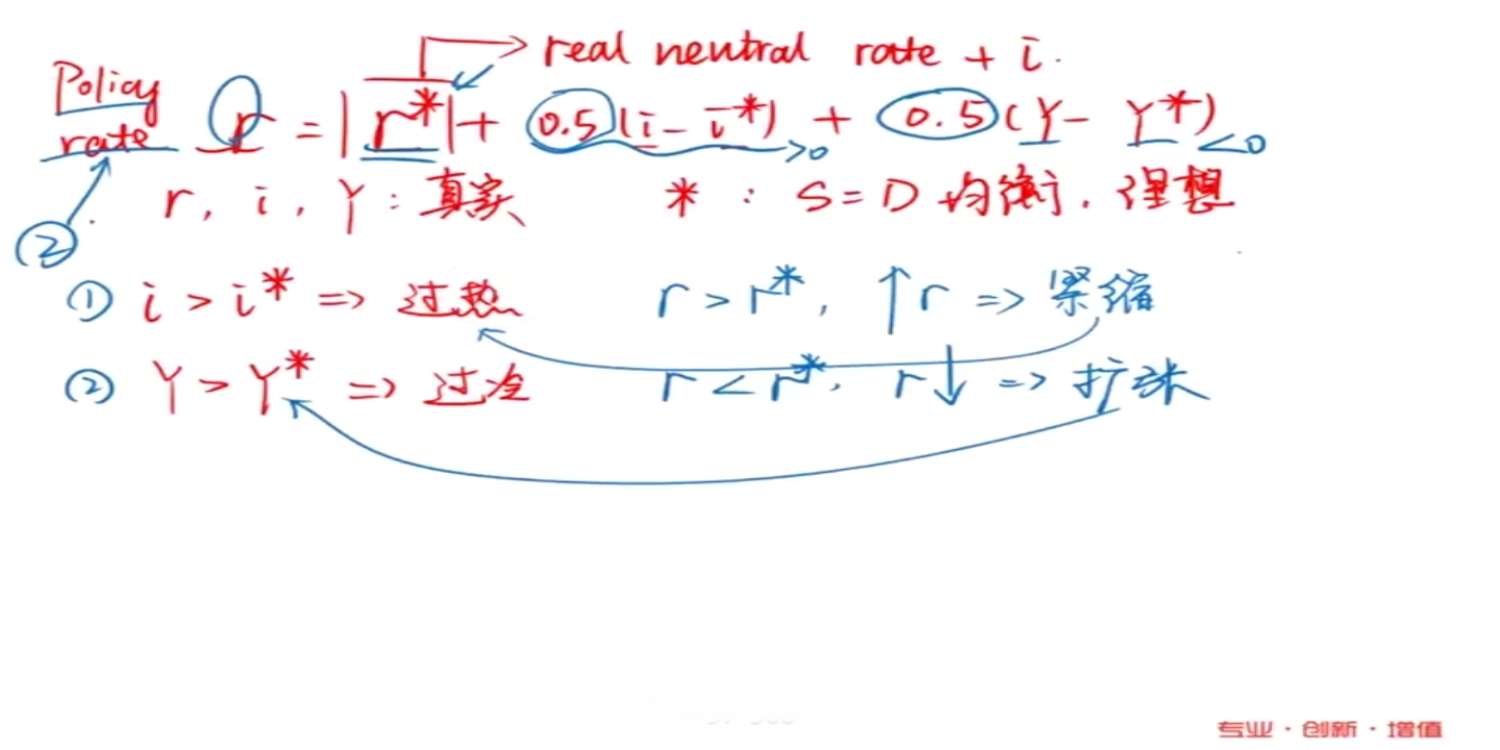 real neutral rate + i.
Policy rate r = |r*| + 0.5(i - i*) + 0.5(Y - Y*)
>0 <0
r, i, Y : 真实 * : S = D 均衡, 理想
②
① i > i* => 过热 r > r*, ↑r => 紧缩
② Y > Y* => 过冷 r < r*, r↓ => 扩张
专业·创新·增值